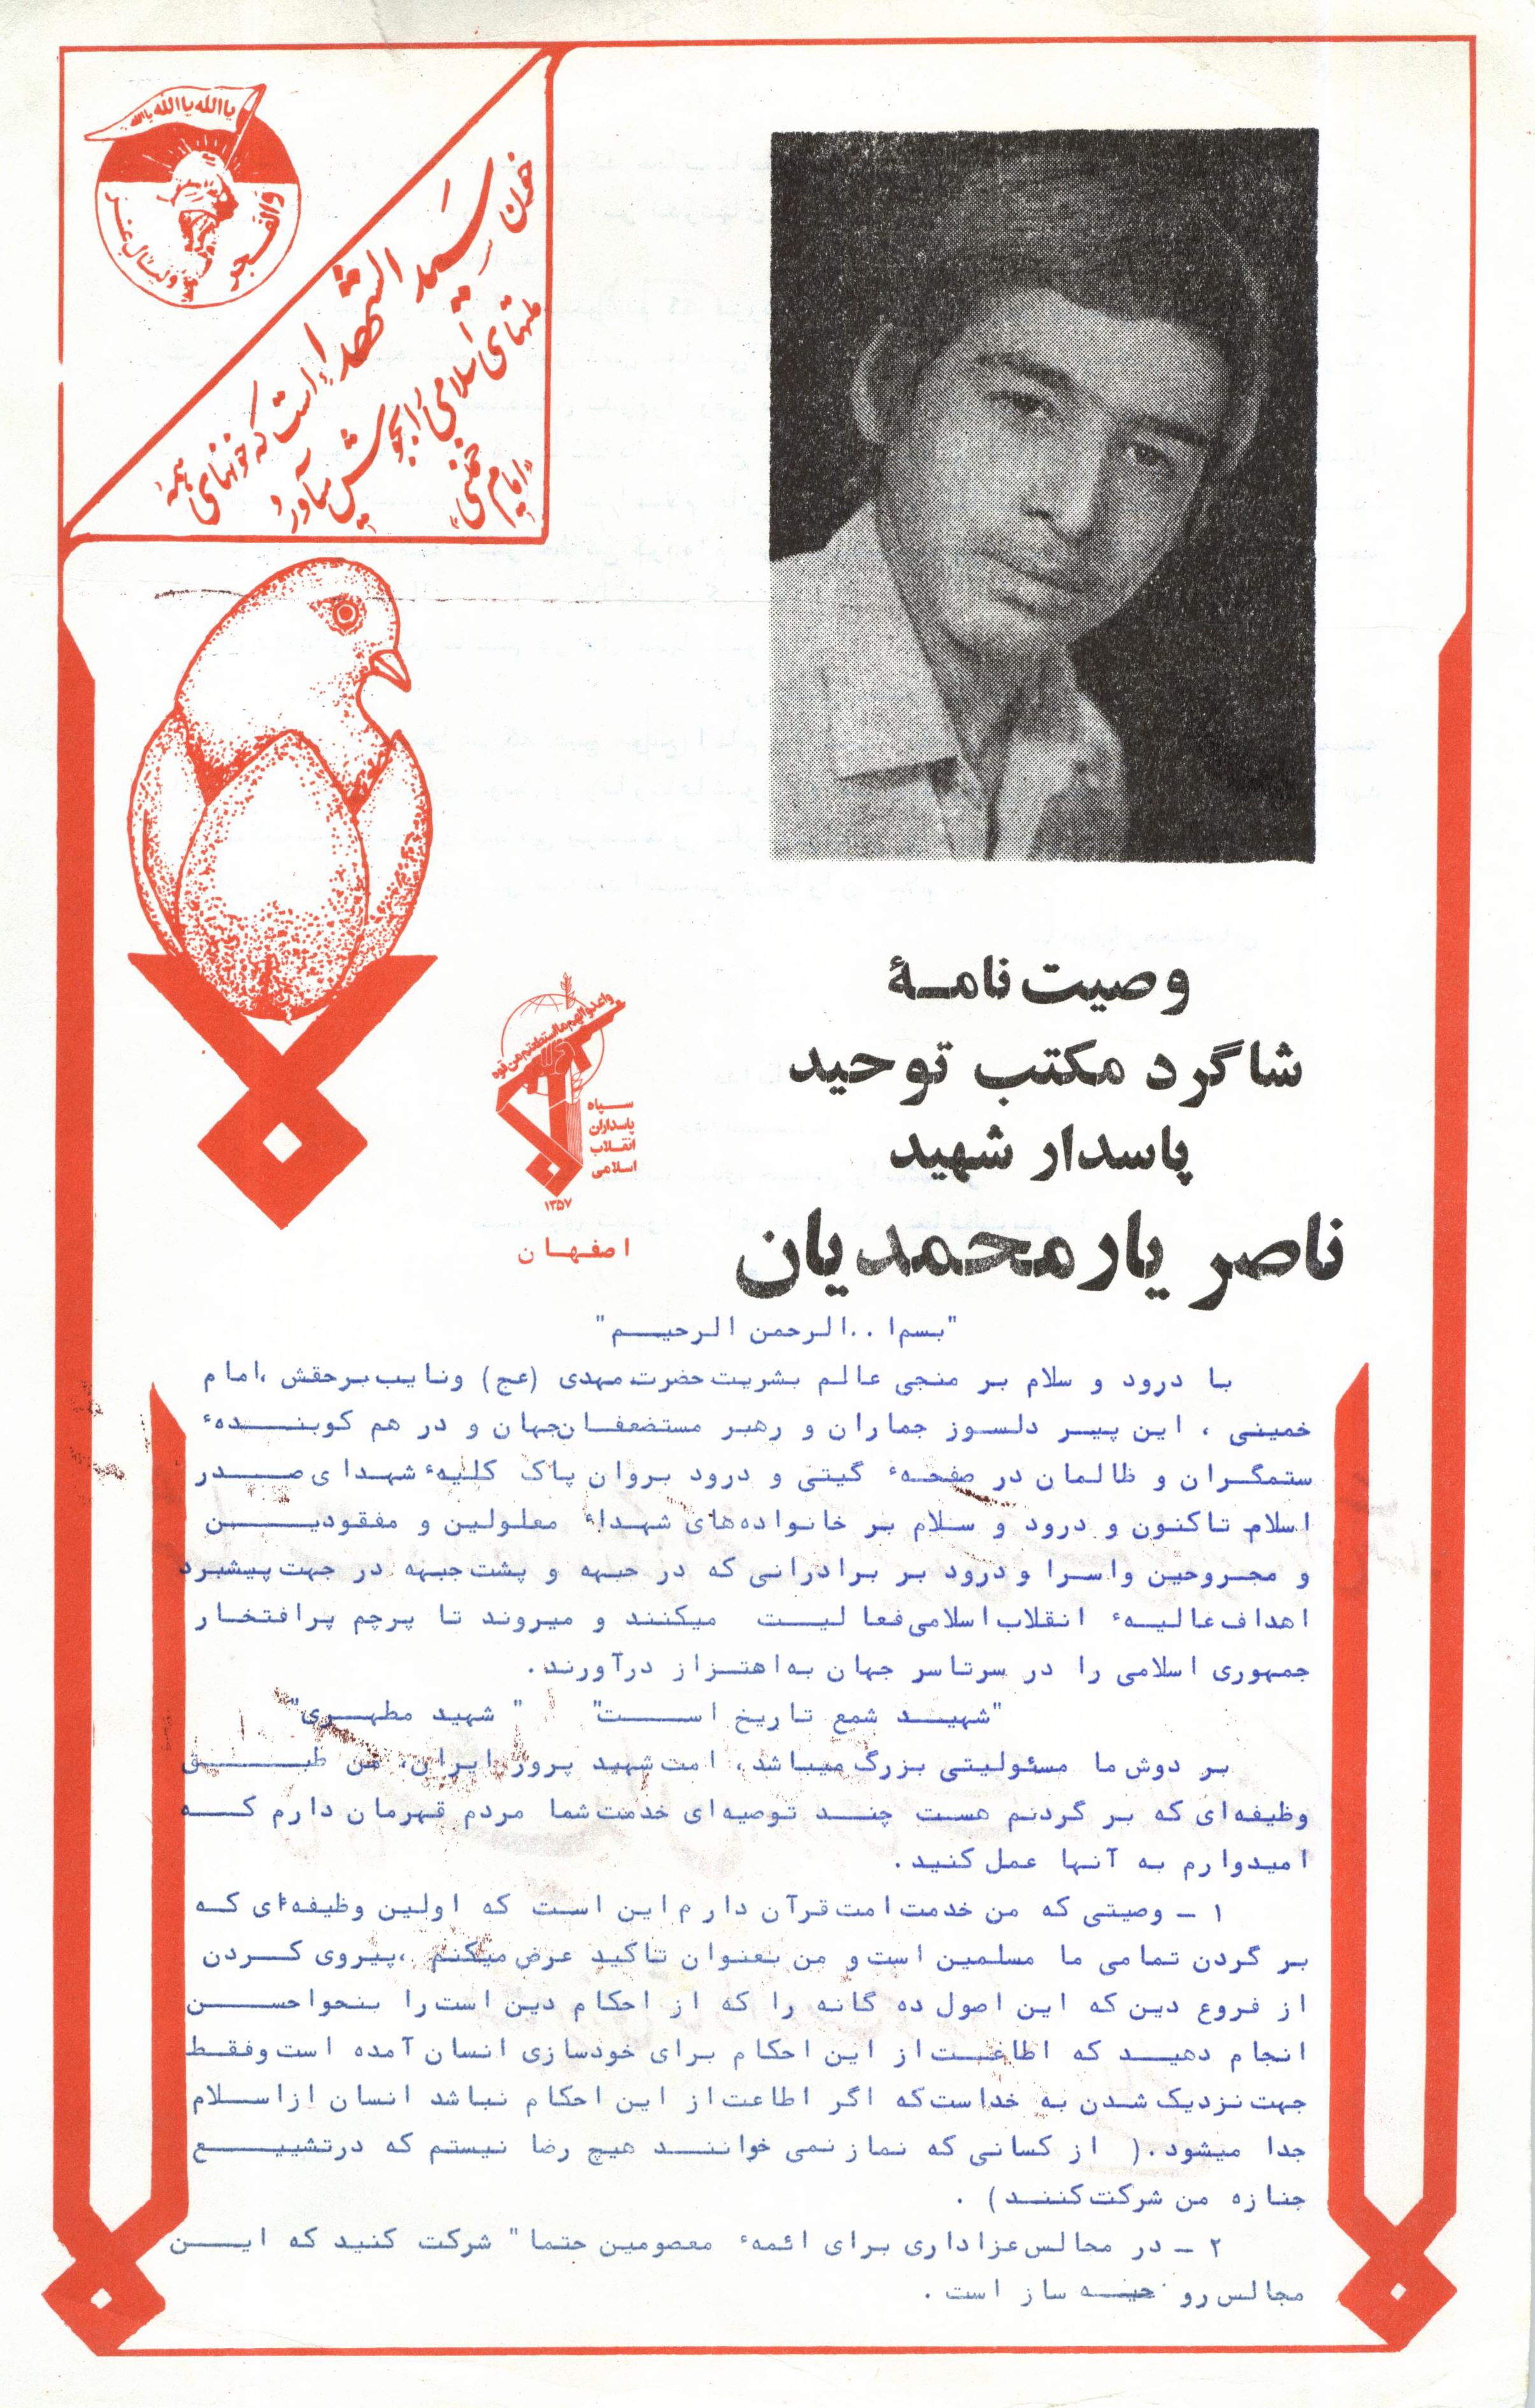 یاالله یاالله یاالله
والفجر
ولیال عشر
خون
سید الشهداء است که خونهای همه
ملتهای اسلامی را بجوش میآورد
"امام خمینی"
واعدوالهم مااستطعتم من قوه
سپاه
پاسداران
انقلاب
اسلامی
۱۳۵۷
اصفهان
وصیت نامهٔ
شاگرد مکتب توحید
پاسدار شهید
ناصر یارمحمدیان
"بسم ا.. الرحمن الرحیم"
با درود و سلام بر منجی عالم بشریت حضرت مهدی (عج) ونایب برحقش ،امام
خمینی ، این پیر دلسوز جماران و رهبر مستضعفان جهان و در هم کوبندهٔ
ستمگران و ظالمان در صفحهٔ گیتی و درود بروان پاک کلیهٔ شهدای صدر
اسلام تاکنون و درود و سلام بر خانواده‌های شهداء معلولین و مفقودین
و مجروحین واسرا و درود بر برادرانی که در جبهه و پشت جبهه در جهت پیشبرد
اهداف عالیهٔ انقلاب اسلامی فعالیت میکنند و میروند تا پرچم پرافتخار
جمهوری اسلامی را در سرتاسر جهان به‌اهتزاز درآورند.
"شهید شمع تاریخ است" " شهید مطهری"
بر دوش ما مسئولیتی بزرگ میباشد، امت شهید پرور ایران، من طبق
وظیفه‌ای که بر گردنم هست چند توصیه‌ای خدمت شما مردم قهرمان دارم که
امیدوارم به آنها عمل کنید.
۱ - وصیتی که من خدمت امت قرآن دارم این است که اولین وظیفه‌ای که
بر گردن تمامی ما مسلمین است و من بعنوان تاکید عرض میکنم ،پیروی کردن
از فروع دین که این اصول ده گانه را که از احکام دین است را بنحواحسن
انجام دهید که اطاعت از این احکام برای خودسازی انسان آمده است وفقط
جهت نزدیک شدن به خداست که اگر اطاعت از این احکام نباشد انسان ازاسلام
جدا میشود.( از کسانی که نماز نمی خوانند هیچ رضا نیستم که درتشییع
جنازه من شرکت کنند) .
۲ - در مجالس عزاداری برای ائمهٔ معصومین حتما" شرکت کنید که این
مجالس رو حیه ساز است .